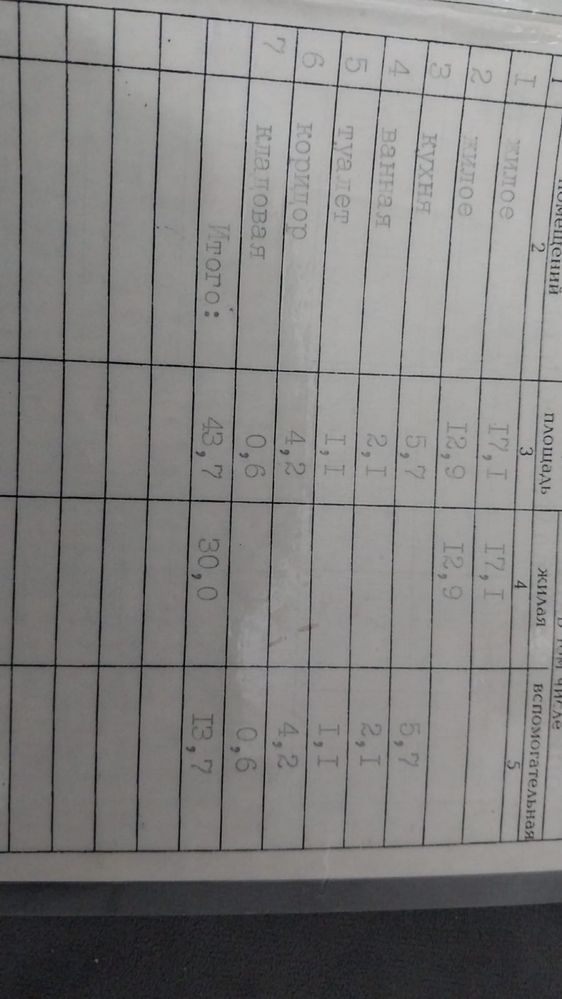 в том числе
помещений площадь жилая вспомогательная
1 2 3 4 5
I жилое I7,I I7,I
2 жилое I2,9 I2,9
3 кухня 5,7 5,7
4 ванная 2,I 2,I
5 туалет I,I I,I
6 коридор 4,2 4,2
7 кладовая 0,6 0,6
Итого: 43,7 30,0 I3,7